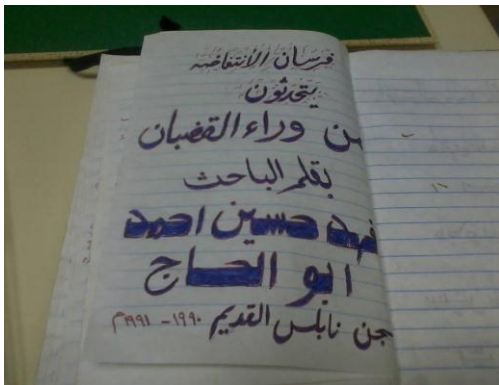 فرسان الأنتفاضة
يتحدثون
من وراء القضبان
بقلم الباحث
فهد حسين احمد
ابو الحاج
جن نابلس القديم ١٩٩٠ - ١٩٩١م